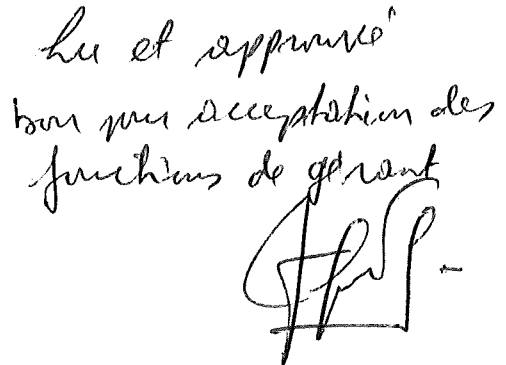 Lu et approuvé
bon pour acceptation des
fonctions de gérant